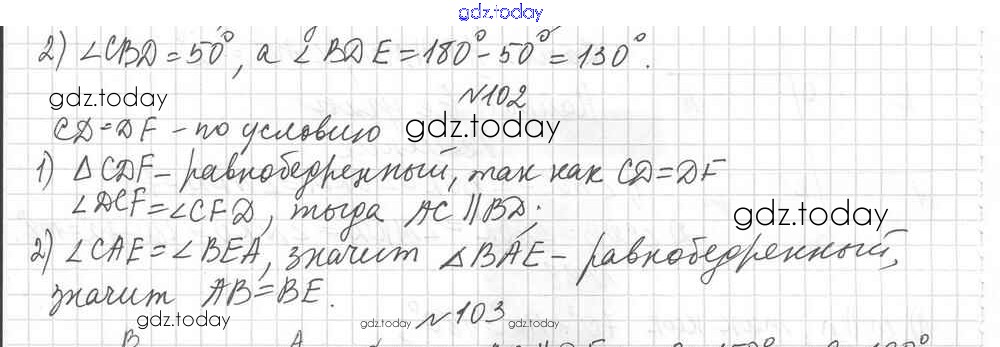 gdz.today
2) ∠CBD = 50°, а ∠BDE = 180° - 50° = 130°.
gdz.today
№102
CD = DF - по условию gdz.today
1) △CDF - равнобедренный, так как CD = DF
∠DCF = ∠CFD, тогда AC ∥ BD; gdz.today
2) ∠CAE = ∠BEA, значит △BAE - равнобедренный,
значит AB = BE.
gdz.today gdz.today №103 gdz.today